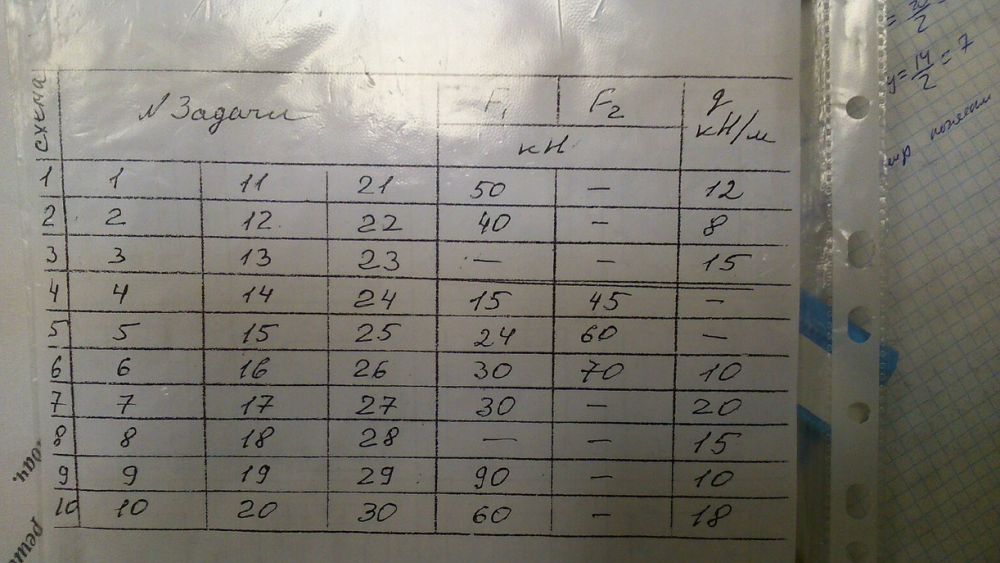 схема N Задачи F1 F2 q
кН кН/м
1 1 11 21 50 – 12
2 2 12 22 40 – 8
3 3 13 23 — – 15
4 4 14 24 15 45 –
5 5 15 25 24 60 –
6 6 16 26 30 70 10
7 7 17 27 30 – 20
8 8 18 28 — – 15
9 9 19 29 90 – 10
10 10 20 30 60 – 18
y = 14/2 = 7